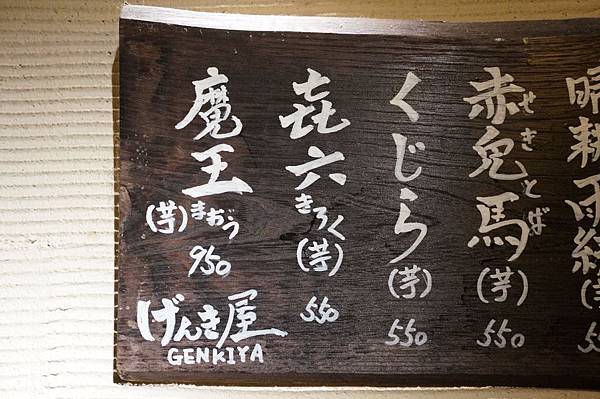 晴耕雨読
(芋)
赤兎馬
せきとば
(芋)
550
くじら
(芋)
550
㐂六
きろく
(芋)
550
魔王
(芋)まおう
950
げんき屋
GENKIYA